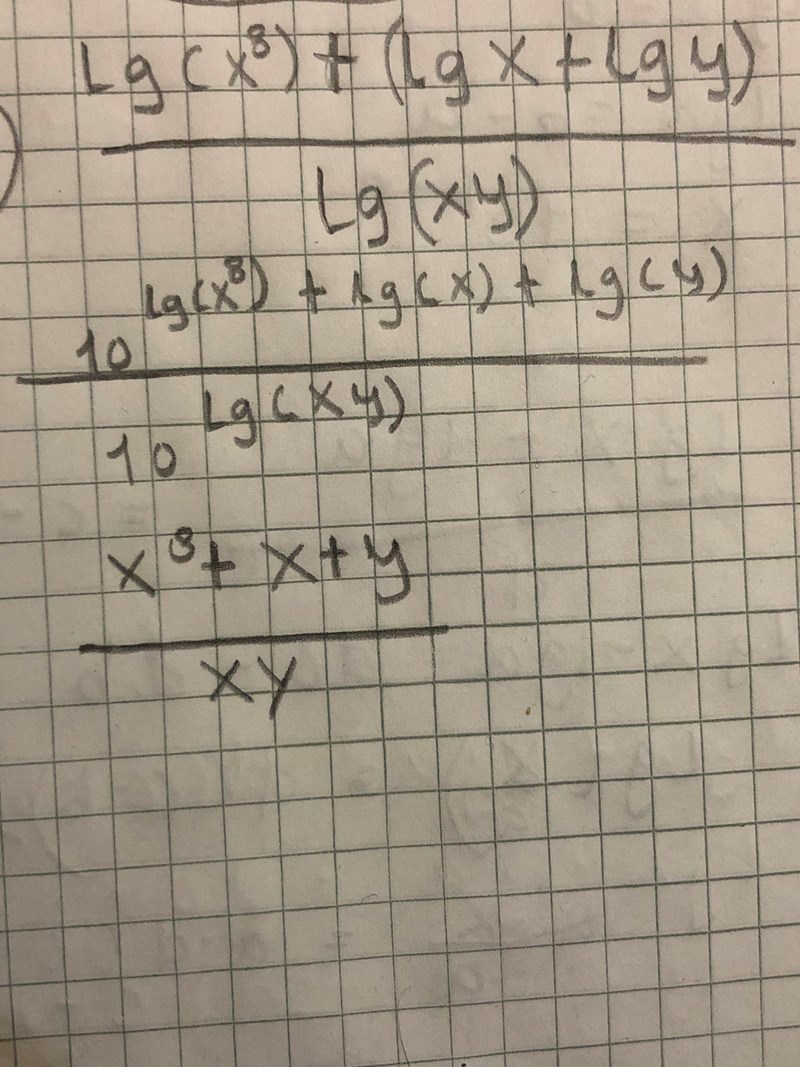 Lg(x⁸) + (lg x + lg y)
Lg(xy)
10^(Lg(x⁸) + Lg(x) + Lg(y))
10^(Lg(xy))
x⁸ + x + y
xy